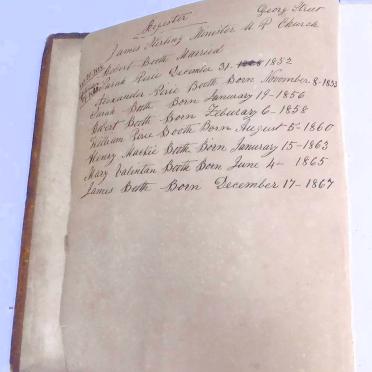 Georg Street
Register
James Stirling Minister U P Church
Robert Booth Married
Sarah Pirie December 31 - 1852
Alexander Pirie Booth Born November 8 - 1853
Sarah Booth Born Januaray 19 - 1856
Robert Booth Born Feburay 6 - 1858
William Pirie Booth Born August 5 - 1860
Henry Mackie Booth Born Januray 15 - 1863
Mary Valentan Booth Born June 4 - 1865
James Booth Born December 17 - 1867